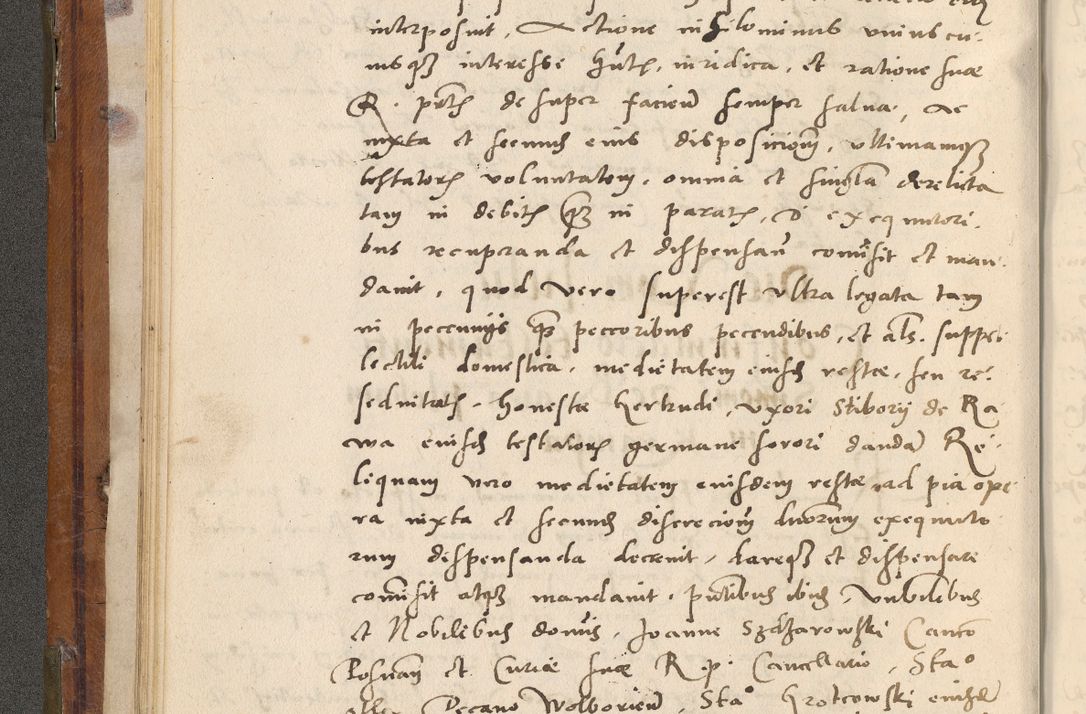 interposuit, Actione nihilominus uniuscu-
iusq3 interesse hntis, iuridica, et ratione suae
R. ptis desuper faciend semper salva, Ac
iuxta et secund eius disposicionem, ultimamq3
testatoris voluntatem, omnia et singula derelicta
tam in debitis q3 in paratis, D exequutori-
bus recuperanda et dispensand comisit et man-
davit, quod vero superest ultra legata tam
in pecuniis q3 peccoribus pecendibus, et als. suppel-
lectili domestica, medietatem eiusd restae, seu re-
seduitatis, honestae Gertrudi, uxori Stiborii de Ra
wa eiusd testatoris germane sorori dandam Re-
liquam vero medietatem eiusdem restae ad pia ope-
ra iuxta et secund discreciom duorum exequuto-
rum dispensanda decrevit, dareq3 et dispensare
comisit atq3 mandavit. pntibus ibid, Venbilibus
et Nobilibus donis, Joanne Szcharowski Canco
Posnan et Curiae suae R. p. Cancellario, Stao
Decano Wolborien, Stao Grotcowski eiusd